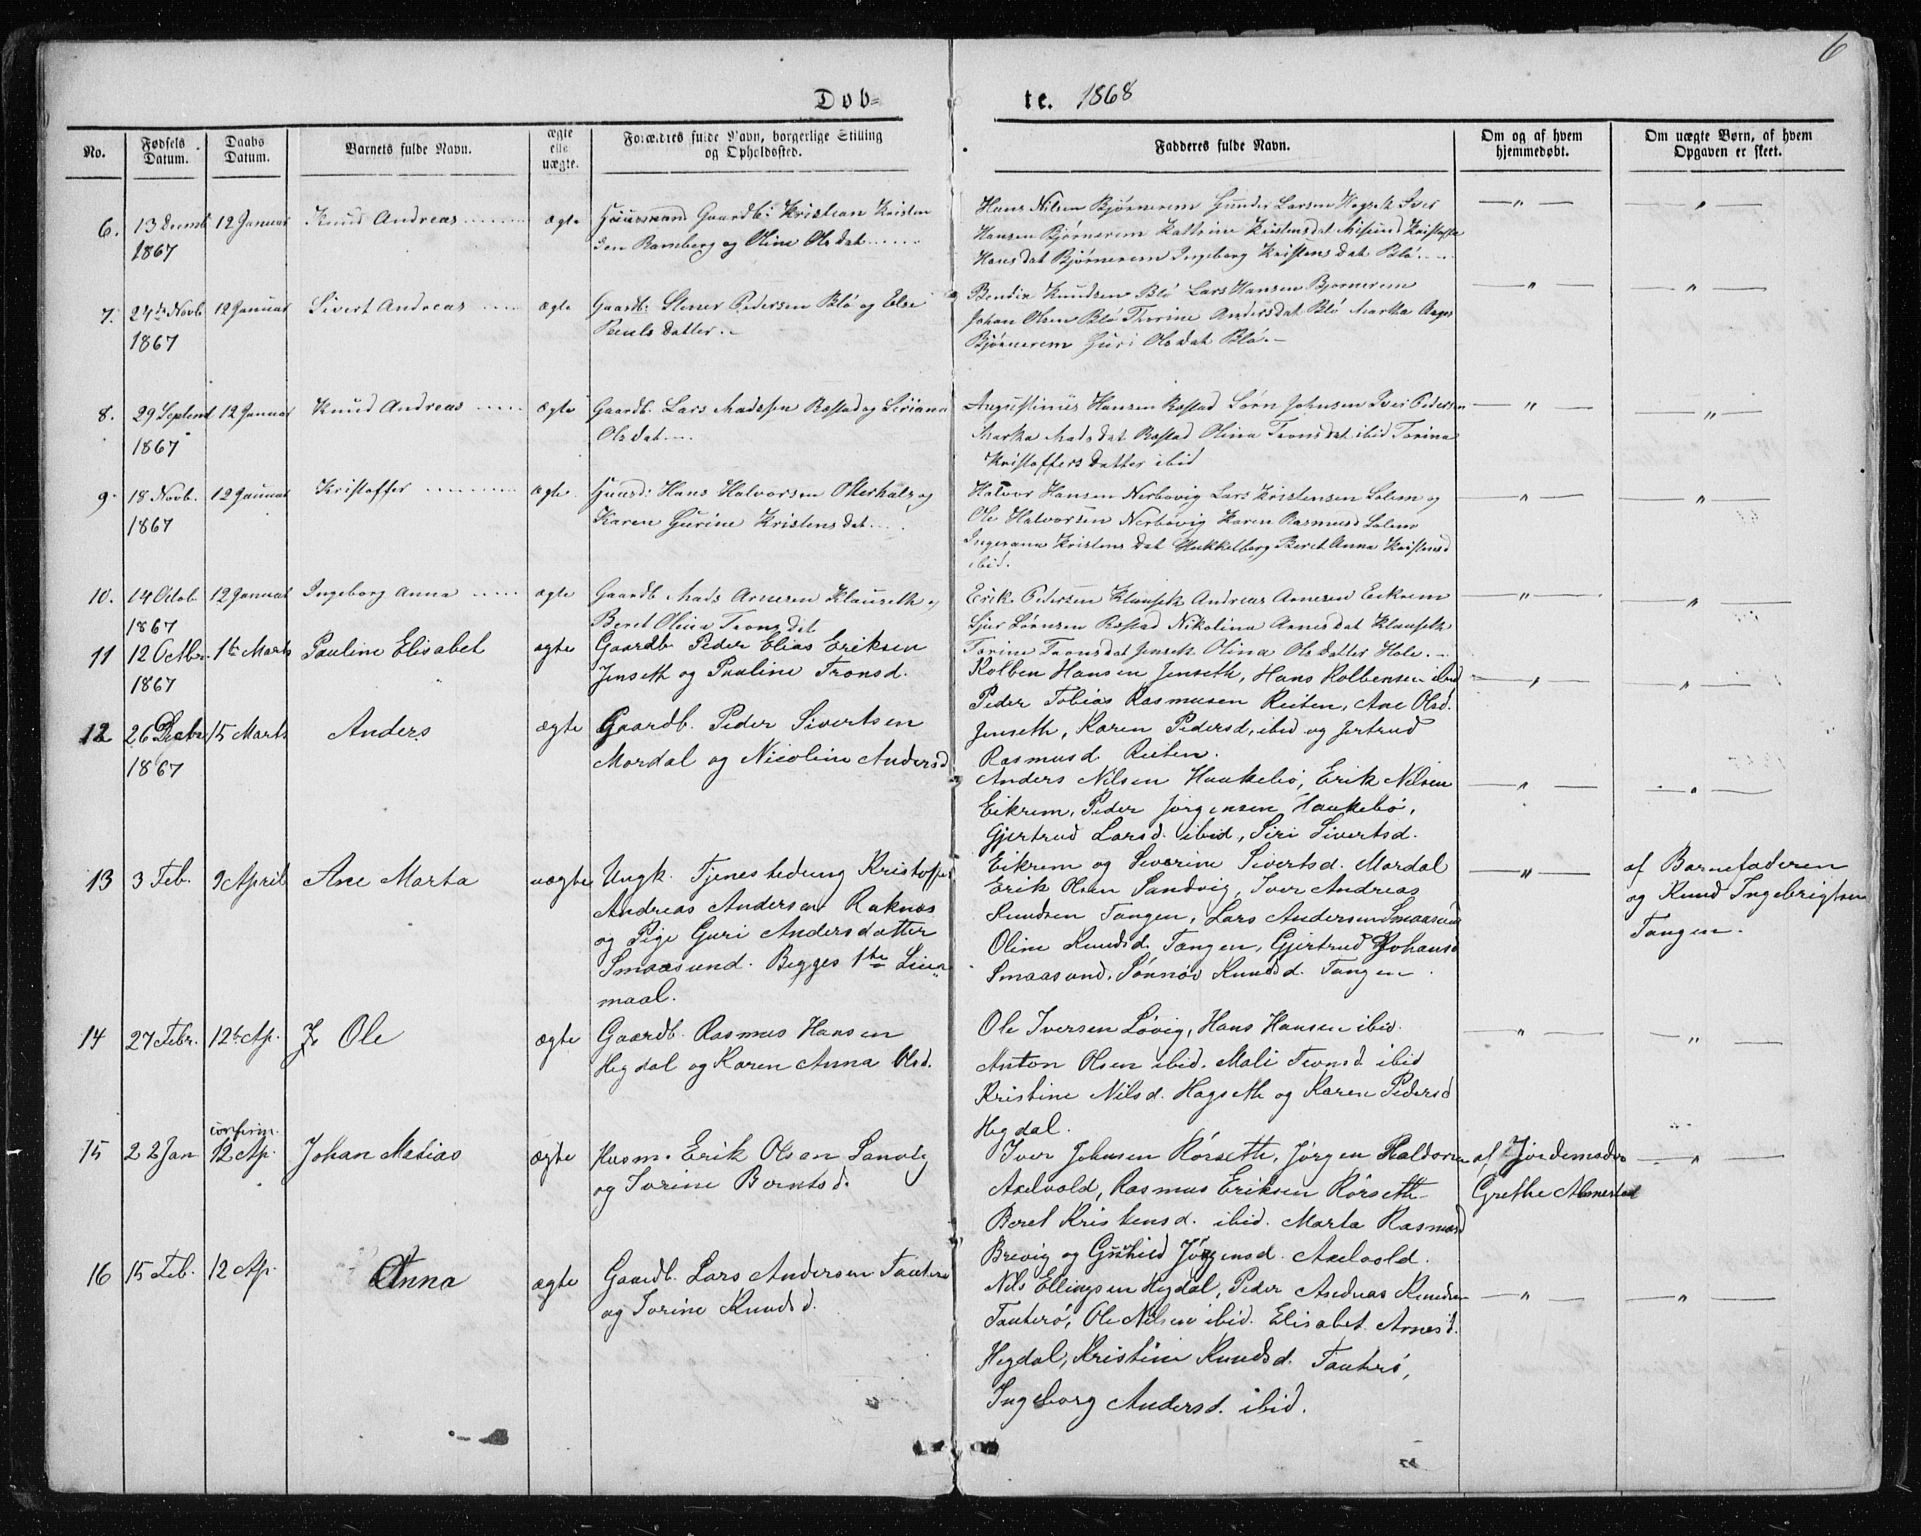 6
Døb= te. 1868
No. Fødsels Datum. Daabs Datum. Barnets fulde Navn. ægte elle uægte. Forældres fulde Navn, borgerlige Stilling og Opholdssted. Fadderes fulde Navn. Om og af hvem hjemmedøbt. Om uægte Børn, af hvem Opgaven er skeet.
6. 13 Decemb 12 Januar Knud Andreas ægte Huusmand Gaardb: Kristian Kristen Hans Nilsen Bjørnerem Gunder Larsen Iver — " — — " —
1867 sen Ramberg og Oline Olsdat Hansen Bjørnerem Kattrine Kristensdat
Hansdat Bjørnerem Ingeborg Kristensdat Blø.
7. 24de Novb. 12 Januar Sivert Andreas ægte Gaardb: Stener Pedersen Blø og Else Bendix Knudsen Blø Lars Hansen Bjørnerem — " — — " —
1867 Pouls datter. Johan Olsen Blø Thorine Andersdat Blø Marta Aages
Bjørnerem Guri Olsdat Blø.
8. 29 Septemb 12 Januar Knud Andreas ægte Gaardb. Lars Madsen Rostad og Siriana Augustinus Hansen Rostad Sørn Johnsen Iver Pedersen — " — — " —
1867 Olsdat Marta Madsdat Rostad Olina Tronsdat ibid Torina
Kristoffersdatter ibid
9. 18 Novb. 12 Januar Kristoffer ægte. Huusd: Hans Halvorsen Oterhals og Halvor Hansen Nerbøvig Lars Kristensen Solem og — " — — " —
1867 Karen Gurine Kristensdat Ole Halvorsen Nerbøvig Karen Rasmusd Solem
Ingerana Kristensdat Hukkelberg Beret Anna Kristensd
ibid.
10. 14 Octob. 12 Januar Ingeborg Anna ægte Gaardb Mads Arnesen Klauseth og Erik Pedersen Klauseth Andreas Arnesen Eikrem — " — — " —
1867 Beret Olina Tronsdat Sjur Sørnsen Rostad Nikolina Arnesdat Klauseth
11 12 Octbr. 1te Marts Pauline Elisabet ægte Gaardb Peder Elias Eriksen Torine Tronsdat Jenseth Olina Olsdatter Hole.
1867 Jenseth og Pauline Tronsd. Kolben Hansen Jenseth, Hans Kolbensen ibid — " — — " —
Peder Tobias Rasmusen Reiten, Ane Olsd.
12 26 Decbr. 15 Marts Anders ægte Gaardb. Peder Sivertsen Jenseth, Karen Pedersd. ibid og Jertrud
1867 Mordal og Nicoline Andersd Rasmusd Reiten.
Anders Nilsen Haukebø, Erik Nilsen — " — — " —
Eikrem, Peder Jørgensen Haukebø,
Gjertrud Larsd. ibid, Siri Sivertsd.
Eikrem og Severine Sivertsd. Mordal
13 3 Feb. 9 April Ane Marta uægte Ungk. Tjenestedreng Kristoffer Erik Olsen Sandvig, Iver Andreas — " — af Barnefaderen
Andreas Andersen Raknæs Knudsen Tangen, Lars Andersen Smaasund og Knud Ingebrigtsen
og Pige Guri Andersdatter Oline Knudsd. Tangen, Gjertrud Johansd Tangen.
Smaasund. Begges 1te Leier= Smaasund, Sønnøv Knudsd. Tangen.
maal.
14 27 Febr. 12te Ap. Ole ægte Gaardb. Rasmus Hansen Ole Iversen Løvig, Hans Hansen ibid. — " — — " —
Hegdal og Karen Anna Olsd. Anton Olsen ibid. Mali Tronsd ibid
Kristine Nilsd. Hagseth og Karen Pedersd
Hegdal.
confirm.
15 22 Jan 12 Ap. Johan Matias ægte Husm. Erik Olsen Sandvig Iver Johnsen Rørseth, Jørgen Haldorsen af Jordemoder — " —
og Sorine Berntsd. Axelvold, Rasmus Eriksen Rørseth Grethe
Beret Kristensd. ibid. Marta Rasmusd
Brevig og Gunhild Jørgensd. Axelvold.
16 15 Feb. 12 Ap. Anna ægte Gaardb. Lars Andersen Tauterø Nils Ellingsen Hegdal, Peder Andreas Knudsen — " — — " —
og Sorine Knudsd. Tauterø, Ole Nilsen ibid. Elisabet Arnesd.
Hegdal, Kristine Knudsd. Tauterø,
Ingeborg Andersd. ibid.